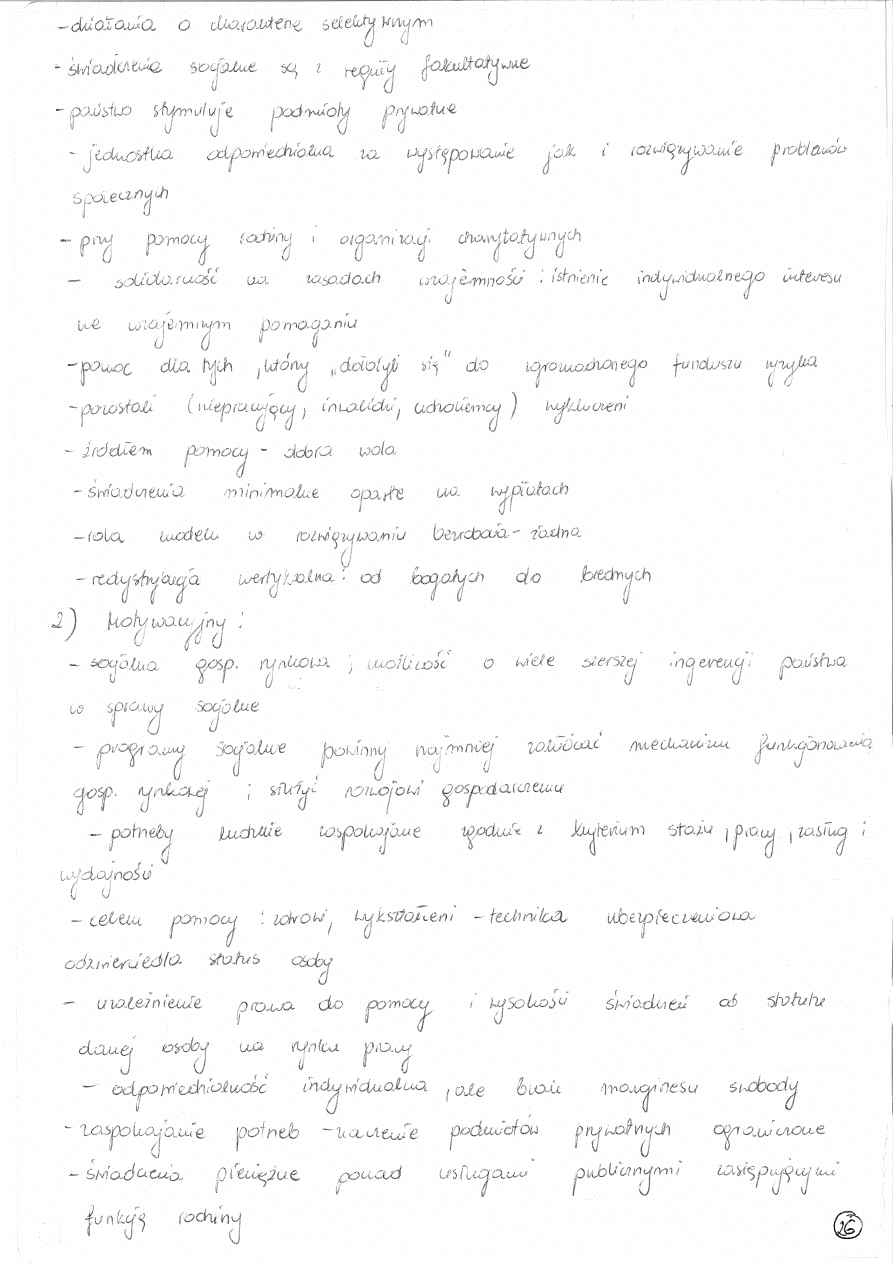 - działania o charakterze selektywnym
- świadczenia socjalne są z reguły fakultatywne
- państwo stymuluje podmioty prywatne
- jednostka odpowiedzialna za występowanie jak i rozwiązywanie problemów
społecznych
- przy pomocy rodziny i organizacji charytatywnych
- solidarność na zasadach wzajemności : istnienie indywidualnego interesu
we wzajemnym pomaganiu
- pomoc dla tych , którzy „dołożyli się" do zgromadzonego funduszu ryzyka
- pozostali (niepracujący, inwalidzi, uchodźcy) wykluczeni
- źródłem pomocy - dobra wola
- świadczenia minimalne oparte na wypłatach
- rola modelu w rozwiązywaniu bezrobocia - żadna
- redystrybucja wertykalna : od bogatych do biednych
2) Motywacyjny :
- socjalna gosp. rynkowa ; możliwość o wiele szerszej ingerencji państwa
w sprawy socjalne
- programy socjalne powinny najmniej zakłócać mechanizm funkcjonowania
gosp. rynkowej i służyć rozwojowi gospodarczemu
- potrzeby ludzkie zaspokajane zgodnie z kryterium stażu , pracy , zasług i
wydajności
- celem pomocy : zdrowi, wykształceni - technika ubezpieczeniowa
odzwierciedla status osoby
- uzależnienie prawa do pomocy i wysokości świadczeń od statutu
danej osoby na rynku pracy
- odpowiedzialność indywidualna , ale brak marginesu swobody
- zaspokajanie potrzeb - znaczenie podmiotów prywatnych ograniczone
- świadczenia pieniężne ponad usługami publicznymi zastępującymi
funkcję rodziny
26